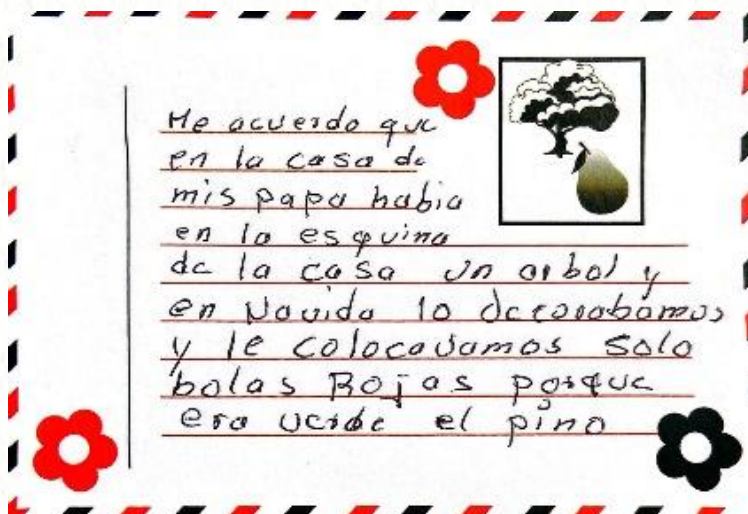 Me acuerdo que
en la casa de
mis papa habia
en la esquina
de la casa un arbol y
en Navida lo decorabamos
y le colocavamos solo
bolas Rojas porque
era verde el pino